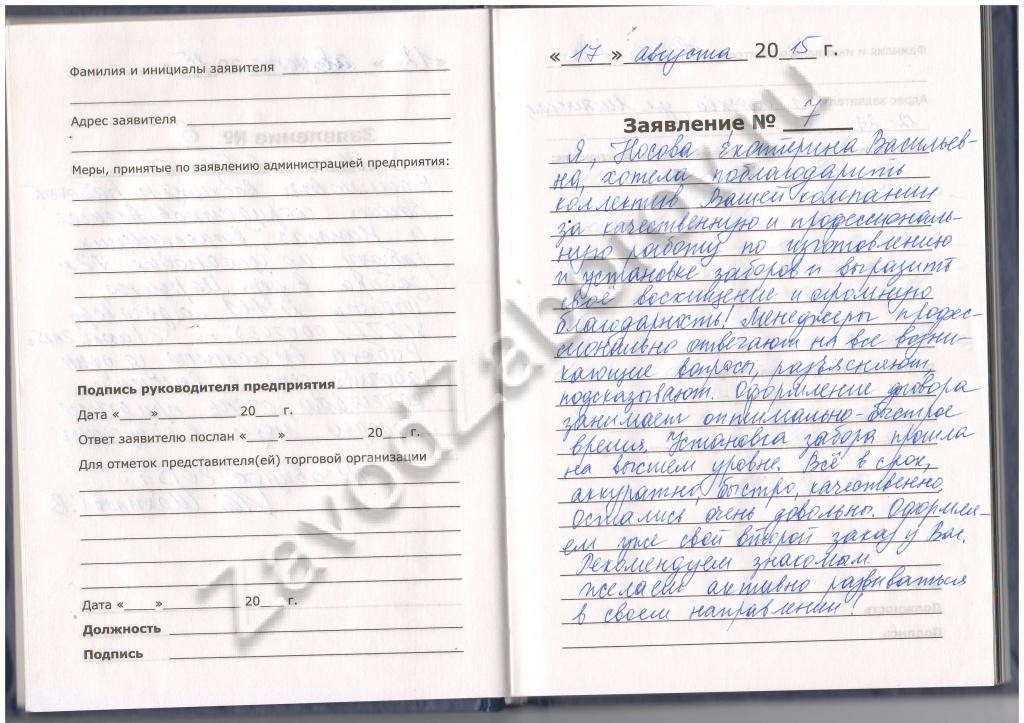 Фамилия и инициалы заявителя
Адрес заявителя
Меры, принятые по заявлению администрацией предприятия:
Подпись руководителя предприятия
Дата «___» 20__ г.
Ответ заявителю послан «___» 20__ г.
Для отметок представителя(ей) торговой организации
Дата «___» 20__ г.
Должность
Подпись
« 17 » августа 20 15 г.
Заявление № 7
Я, Носова Екатерина Васильев-
на, хотела поблагодарить
коллектив Вашей компании
за качественную и профессиональ-
ную работу по изготовлению
и установке заборов и выразить
своё восхищение и огромную
благодарность! Менеджеры профес-
сионально отвечают на все возни-
кающие вопросы, разъясняют,
подсказывают. Оформление договора
занимает оптимально-быстрое
время. Установка забора прошла
на высшем уровне. Всё в срок,
аккуратно, быстро, качественно.
Остались очень довольны. Оформля-
ем уже свой второй заказ у Вас.
Рекомендуем знакомым.
Желаем активно развиваться
в своем направлении!
ZavodZaborov.ru